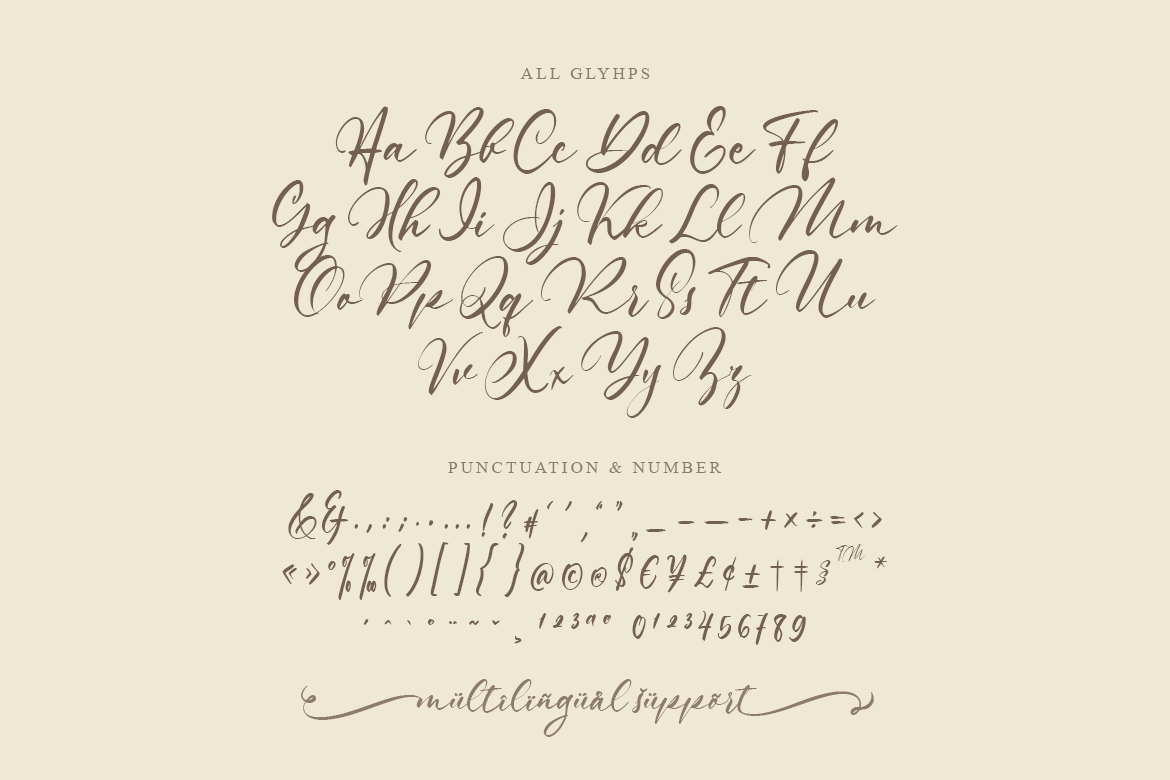 ALL GLYHPS
Aa Bb Cc Dd Ee Ff
Gg Hh Ii Jj Kk Ll Mm
Oo Pp Qq Rr Ss Tt Uu
Vv Xx Yy Zz
PUNCTUATION & NUMBER
& & . , : ; · · … ! ? # ‘ ’ ‚ “ ” „ _ – — - + × ÷ = < >
« » ° % ‰ ( ) [ ] { } @ © ® $ € ¥ £ ¢ ± † ‡ § ™ *
´ ˆ ` ˚ ¨ ˜ ˇ ¸ ¹ ² ³ ª º 0 1 2 3 4 5 6 7 8 9
mültîlïñgüål šüppõrt